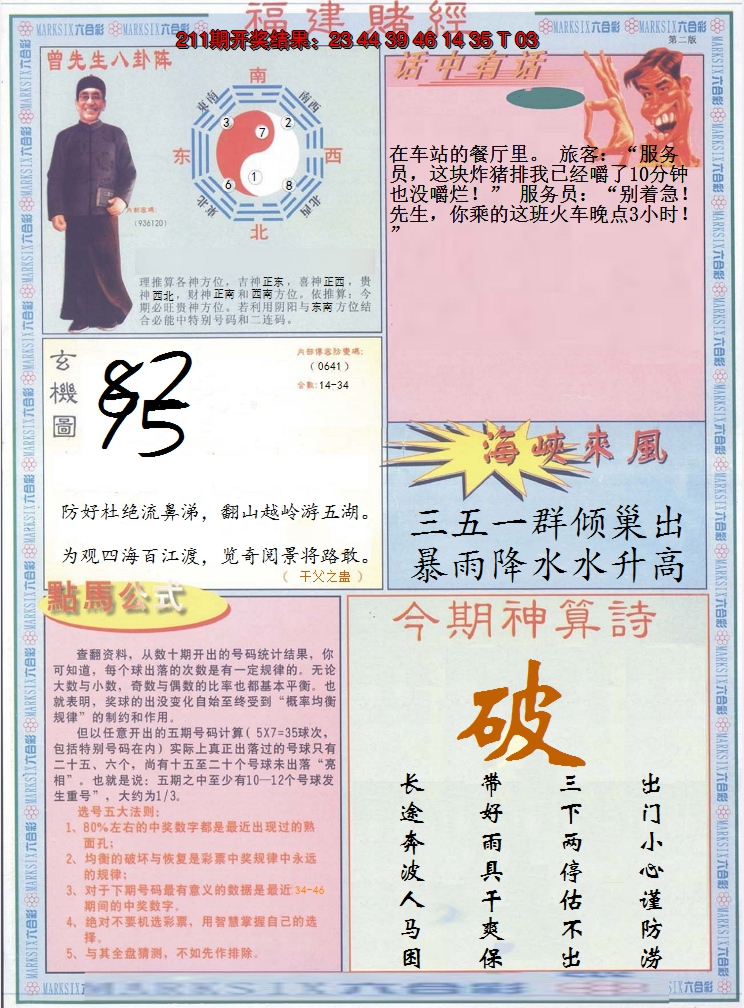 福建賭經
211期开奖结果：23 44 39 46 14 35 T 03
第二版
MARKSIX六合彩
曾先生八卦阵
南
东南
南西
3
2
7
东
西
6
1
8
東北
北西
北
内部密碼:
(936120)
理推算各神方位，吉神正东，喜神正西，贵
神西北，财神正南和西南方位。依推算：今
期必旺贵神方位。若利用阴阳与东南方位结
合必能中特别号码和二连码。
话中有话
在车站的餐厅里。 旅客：“服务
员，这块炸猪排我已经嚼了10分钟
也没嚼烂！” 服务员：“别着急！
先生，你乘的这班火车晚点3小时！
”
玄機圖
内部傳密防變碼:
(0641)
合数:14-34
82
95
防好杜绝流鼻涕，翻山越岭游五湖。
为观四海百江渡，览奇阅景将路敢。
（ 干父之蛊 ）
海峽來風
三五一群倾巢出
暴雨降水水升高
點馬公式
查翻资料，从数十期开出的号码统计结果，你
可知道，每个球出落的次数是有一定规律的。无论
大数与小数，奇数与偶数的比率也都基本平衡。也
就表明，奖球的出没变化自始至终受到“概率均衡
规律”的制约和作用。
但以任意开出的五期号码计算( 5X7=35球次，
包括特别号码在内）实际上真正出落过的号球只有
二十五、六个，尚有十五至二十个号球未出落“亮
相”。也就是说：五期之中至少有10—12个号球发
生重号”，大约为1/3。
选号五大法则:
1、80%左右的中奖数字都是最近出现过的熟
面孔；
2、均衡的破坏与恢复是彩票中奖规律中永远
的规律；
3、对于下期号码最有意义的数据是最近34-46
期间的中奖数字。
4、绝对不要机选彩票，用智慧掌握自己的选
择。
5、与其全盘猜测，不如先作排除。
今期神算詩
破
出门小心谨防涝
三下两停估不出
带好雨具干爽保
长途奔波人马困